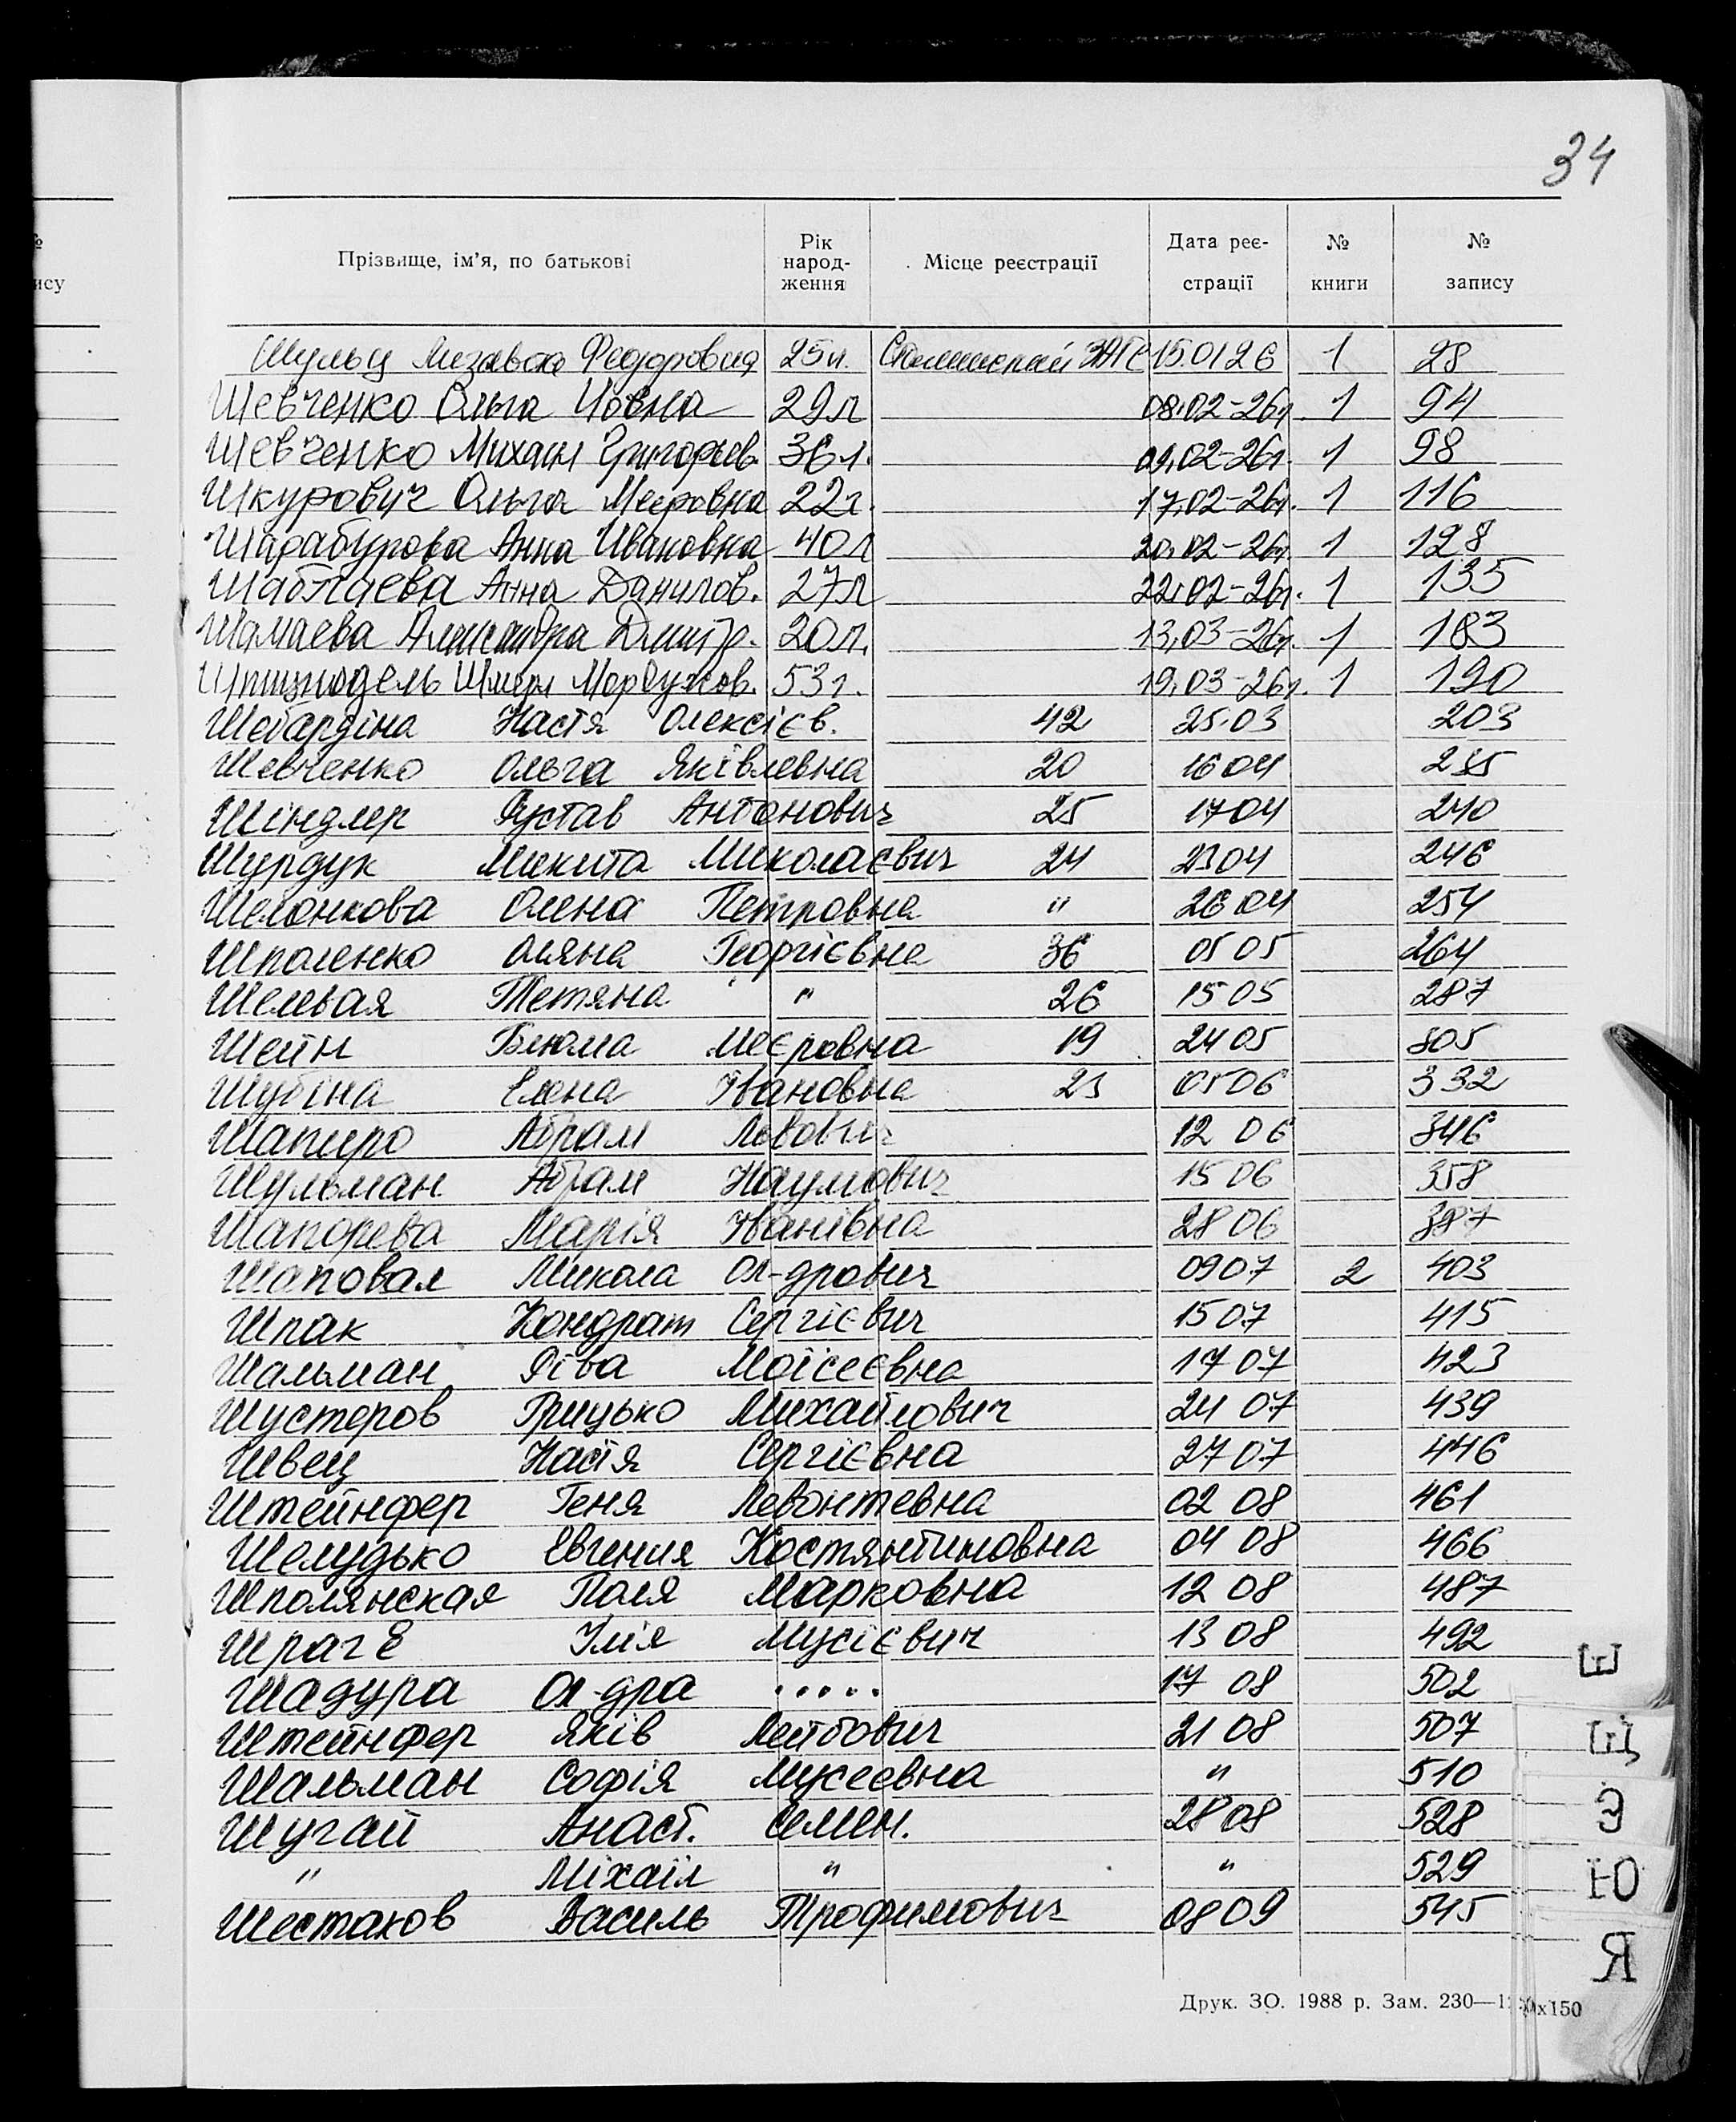 34
№
ису
Прізвище, ім'я, по батькові Рік народ- ження Місце реєстрації Дата реє- страції № книги № запису
Шульц Лизавета Федоровна 25л. ЗАГС 15.01 26 1 28
Шевченко Ольга Иовна 29л 08.02-26г. 1 94
Шевченко Михаил Григорьев. 36л. 09.02-26г. 1 98
Шкурович Ольга Мееровна 22г. 17.02-26г. 1 116
Шарабурова Анна Ивановна 40л 20.02-26г. 1 128
Шаблаева Анна Данилов. 27л 22.02-26г. 1 135
Шамаева Александра Дмитр. 20л. 13.03-26г. 1 183
Шмерл Мордухов. 53г. 19.03-26г. 1 190
Шебардіна Настя Олексієв. 42 25.03 203
Шевченко Ольга Яківлевна 20 16 04
Шіндлер Густав Антонович 25 17 04 240
Шурдук Микита Миколаєвич 24 23 04 246
Шелонкова Олена Петровна " 26 04 254
Шполенко Оляна Георгієвна 36 05 05 264
Шелевая Тетяна " 26 15 05 287
Шейн Блюма Меєровна 19 24 05 305
Шубіна Елена Івановна 23 05 06 332
Шапиро Абрам Львович 12 06 346
Шульман Абрам Наумович 15 06 358
Шапорева Марія Іванівна 28 06 387
Шаповал Микола Ол-дрович 09 07 2 403
Шпак Кондрат Сергієвич 15 07 415
Шальман Ріва Моісеєвна 17 07 423
Шустеров Грицько Михайлович 24 07 439
Швец Настя Сергієвна 27 07 446
Штейнфер Геня Левонтевна 02 08 461
Шелудько Евгения Костянтиновна 04 08 466
Шполянская Поля Марковна 12 08 487
Шраге Ілія Мусієвич 13 08 492
Шадура Ол-дра ..... 17 08 502
Штейнфер Яків Лейбович 21 08 507
Шальман Софія Мусеевна " 510
Шугай Анаст. Семен. 28 08 528
" Міхаіл " " 529
Шестаков Василь Трофимович 08 09 545
Друк. ЗО. 1988 р. Зам. 230—1 х150
Е
Э
Ю
Я